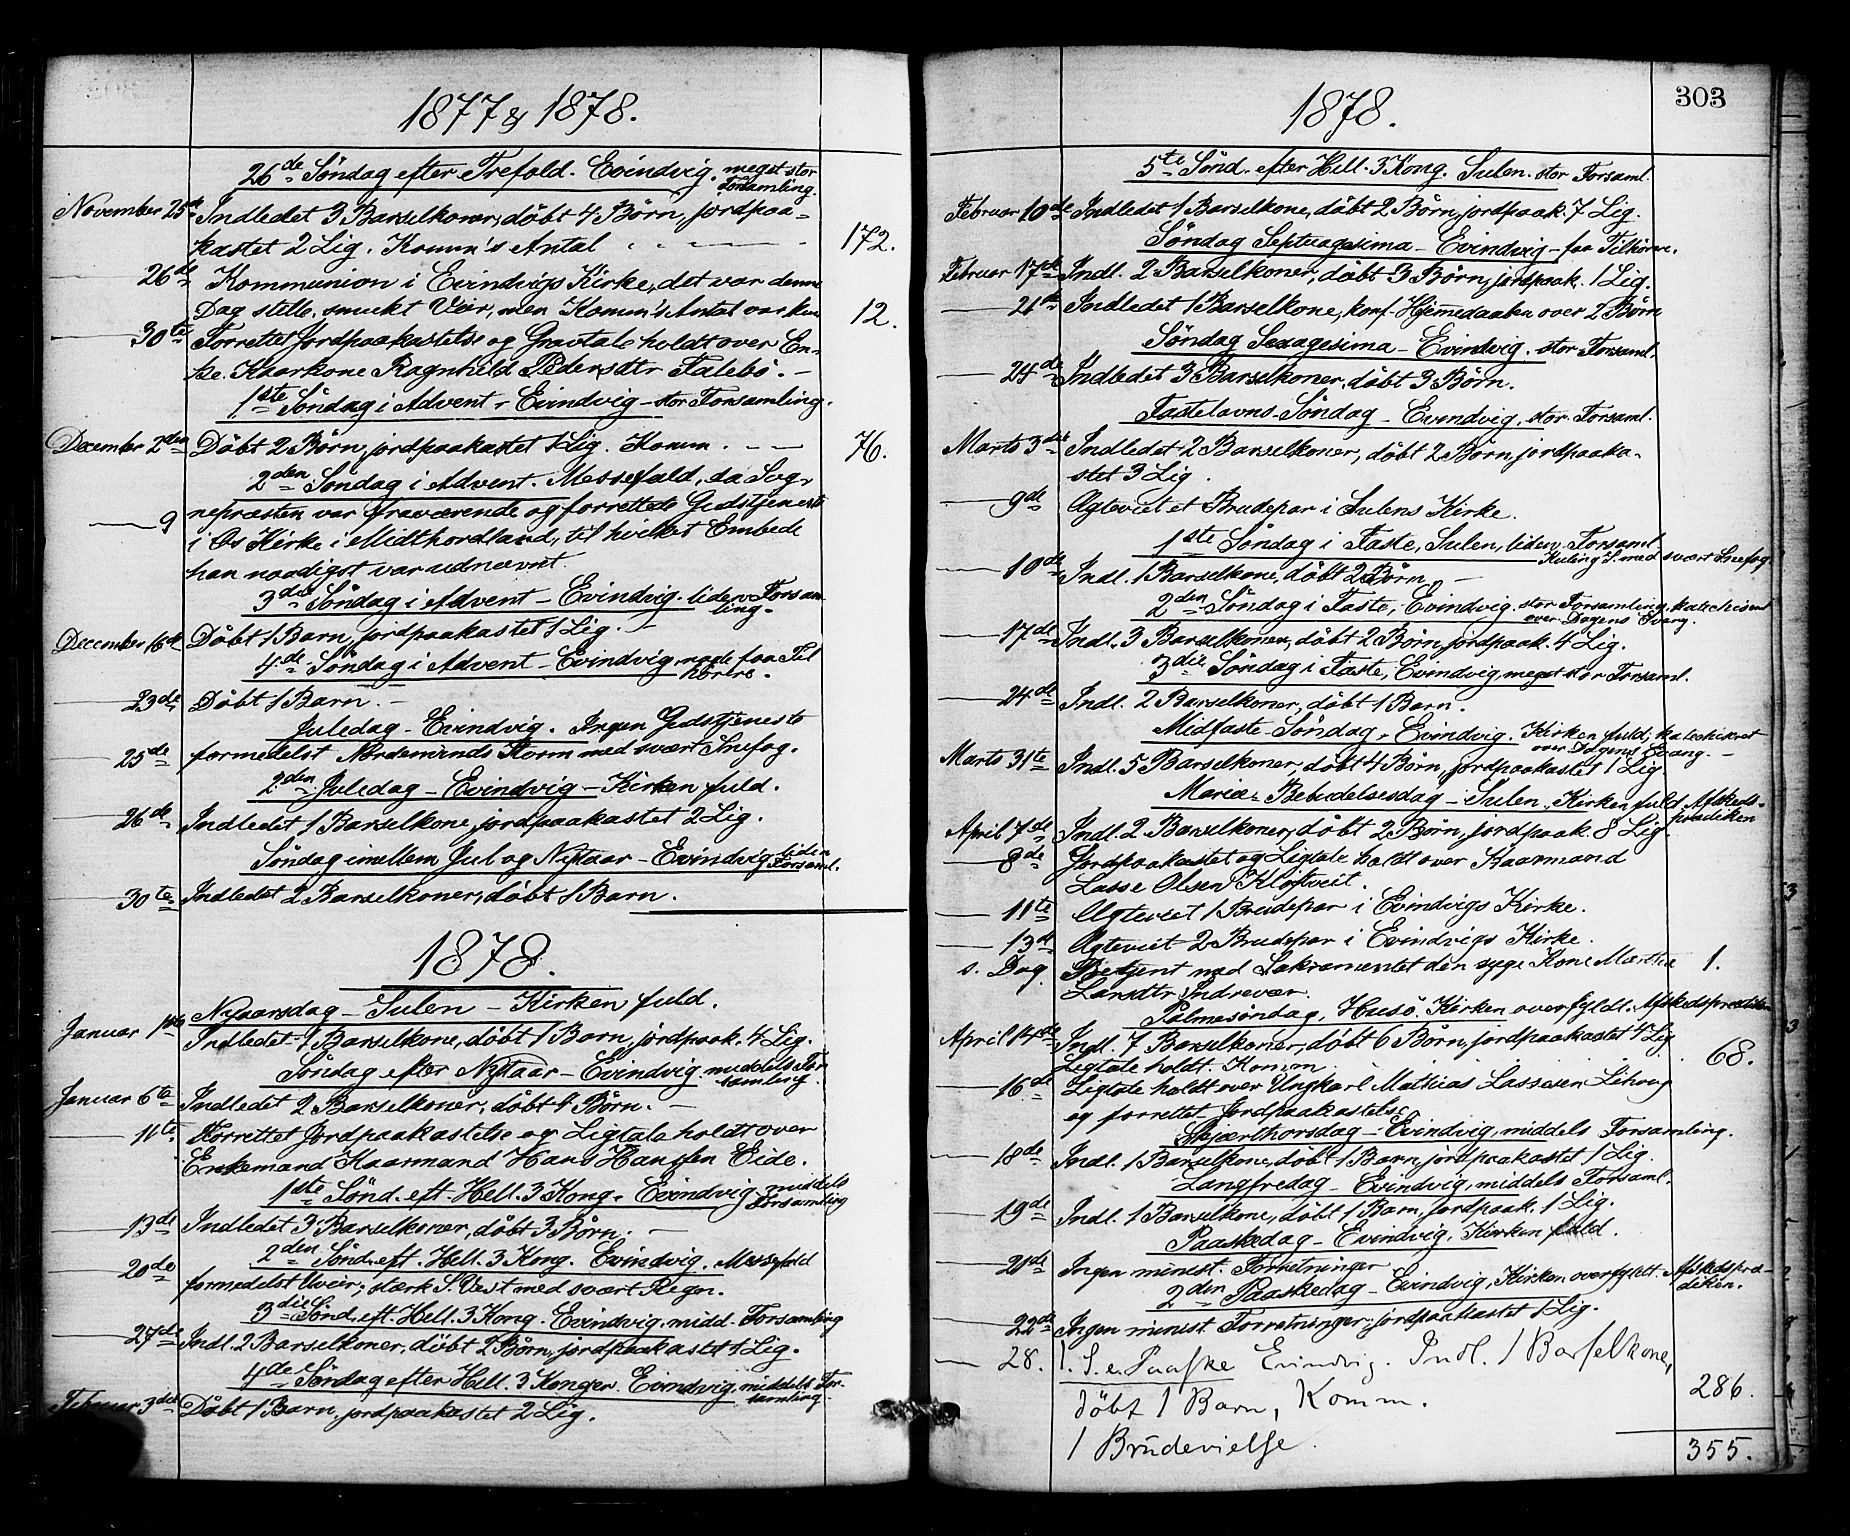 1877 & 1878.
26de Søndag efter Trefold. Evindvig. meget stor
Forsamling.
November 25de Indledet 3 Barselkoner, døbt 4 Børn, jordpaa-
kastet 2 Lig. Komm's Antal 172.
26de Kommunion i Evindvigs Kirke, det var denne
Dag stille, smukt Veir, men Komm's Antal var kun 12.
30te Forrettet Jordpaakastelse og Gravtale holdt over En-
ke, Kaarkone Ragnhild Pedersdtr
1ste Søndag i Advent - Evindvig - stor Forsamling.
December 2den Døbt 2 Børn, jordpaakastet 1 Lig. Komm. 76.
2den Søndag i Advent. Messefald, da Sog-
9 nepræsten var fraværende og forrettede Gudstjeneste
i Os Kirke i Midthordland, til hvilket Embede
han naadigst var udnævnt.
3die Søndag i Advent - Evindvig. liden Forsam-
ling.
December 16de Døbt 1 Barn, jordpaakastet 1 Lig.
4de Søndag i Advent - Evindvig, faa Til
hørere.
23de Døbt 1 Barn.
Juledag - Evindvig. Ingen Gudstjeneste
25de formedelst Nordenvinds Storm med svært Snefog.
2den Juledag - Evindvig - Kirken fuld.
26de Indledet 1 Barselkone, jordpaakastet 2 Lig.
Søndag imellem Jul og Nytaar - Evindvig liden
Forsaml.
30te Indledet 2 Barselkoner, døbt 1 Barn.
1878.
Nytaarsdag - Sulen - Kirken fuld.
Januar 1ste Indledet 1 Barselkone, døbt 1 Barn, jordpaak. 4 Lig.
Søndag efter Nytaar - Evindvig. middels For
samling.
Januar 6te Indledet 2 Barselkoner, døbt 4 Børn.
11te Forrettet Jordpaakastelse og Ligtale holdt over
Enkemand Kaarmand Hans Hanssen Eide.
1ste Sønd. eft. Hell. 3 Kong. Evindvig middels
Forsamling
13de Indledet 3 Barselkoner, døbt 3 Børn.
2den Sønd. eft. Hell. 3 Kong. Evindvig. Messefald
20de formedelst Uveir; stærk S. Vest med svært Regn.
3die Sønd. eft. Hell. 3 Kong. Evindvig. midd. Forsamling
27de Indl. 2 Barselkoner, døbt 2 Børn, jordpaakastet 1 Lig.
4de Søndag efter Hell. 3 Konger. Evindvig. middels For-
samling.
Februar 3die Døbt 1 Barn, jordpaakastet 2 Lig.
303
1878.
5te Sønd. efter Hell. 3 Kong. Sulen. stor Forsaml.
Februar 10de Indledet 1 Barselkone, døbt 2 Børn, jordpaak. 7 Lig.
Søndag Septuagesima - Evindvig - faa Tilhørere.
Februar 17de Indl. 2 Barselkoner, døbt 3 Børn, jordpaak. 1 Lig.
21de Indledet 1 Barselkone, konf. Hjemmedaaben over 2 Børn
Søndag Sexagesima - Evindvig. stor Forsaml.
24de Indledet 3 Barselkoner, døbt 3 Børn.
Fastelavns-Søndag - Evindvig. stor Forsaml.
Marts 3die Indledet 2 Barselkoner, døbt 2 Børn, jordpaaka-
stet 3 Lig.
9de Ægteviet et Brudepar i Sulens Kirke.
1ste Søndag i Faste, Sulen, liden Forsaml
Kuling S. med svært Snefog
10de Indl. 1 Barselkone, døbt 2 Børn.
2den Søndag i Faste, Evindvig. stor Forsamling, katechiseret
over Dagens Evang.
17de Indl. 3 Barselkoner, døbt 2 Børn, jordpaak. 4 Lig.
3die Søndag i Faste, Evindvig, meget stor Forsaml.
24de Indl. 2 Barselkoner, døbt 1 Barn.
Midfaste-Søndag - Evindvig. Kirken fuld; katechiseret
over Dagens Evang.
Marts 31te Indl. 5 Barselkoner, døbt 4 Børn, jordpaakastet 1 Lig
Mariæ Bebudelsesdag - Sulen, Kirken fuld. Afskeds-
prædiken
April 7de Indl. 2 Barselkoner, døbt 2 Børn, jordpaak. 8 Lig.
8de Jordpaakastet og Ligtale holdt over Kaarmand
Lasse Olsen
11te Ægteviet 1 Brudepar i Evindvigs Kirke.
13de Ægteviet 2 Brudepar i Evindvigs Kirke.
s. Dag. Betjent med Sakramentet den syge Kone Martha 1.
Larsdtr Indrevær.
Palmesøndag, Husø. Kirken overfyldt. Afskedsprædiken
April 14de Indl. 7 Barselkoner, døbt 6 Børn, jordpaakastet 4 Lig
Ligtale holdt. Komm. 68.
16de Ligtale holdt over Ungkarl Mathias Lassesen
og forrettet Jordpaakastelse.
Skjærthorsdag - Evindvig, middels Forsamling.
18de Indl. 1 Barselkone, døbt 1 Barn, jordpaakastet 1 Lig.
Langfredag - Evindvig, middels Forsaml.
19de Indl. 1 Barselkone, døbt 1 Barn, jordpaak. 1 Lig.
Paaskedag - Evindvig. Kirken fuld.
21de Ingen minist. Forretninger.
2den Paaskedag - Evindvig, Kirken overfyldt. Afskedspræ-
diken.
22de Ingen minist. Forretninger, jordpaakastet 1 Lig.
28. 1. S. e. Paaske Evindvig. Indl. 1 Barselkone,
døbt 1 Barn, Komm. 286.
1 Brudevielse.
355.